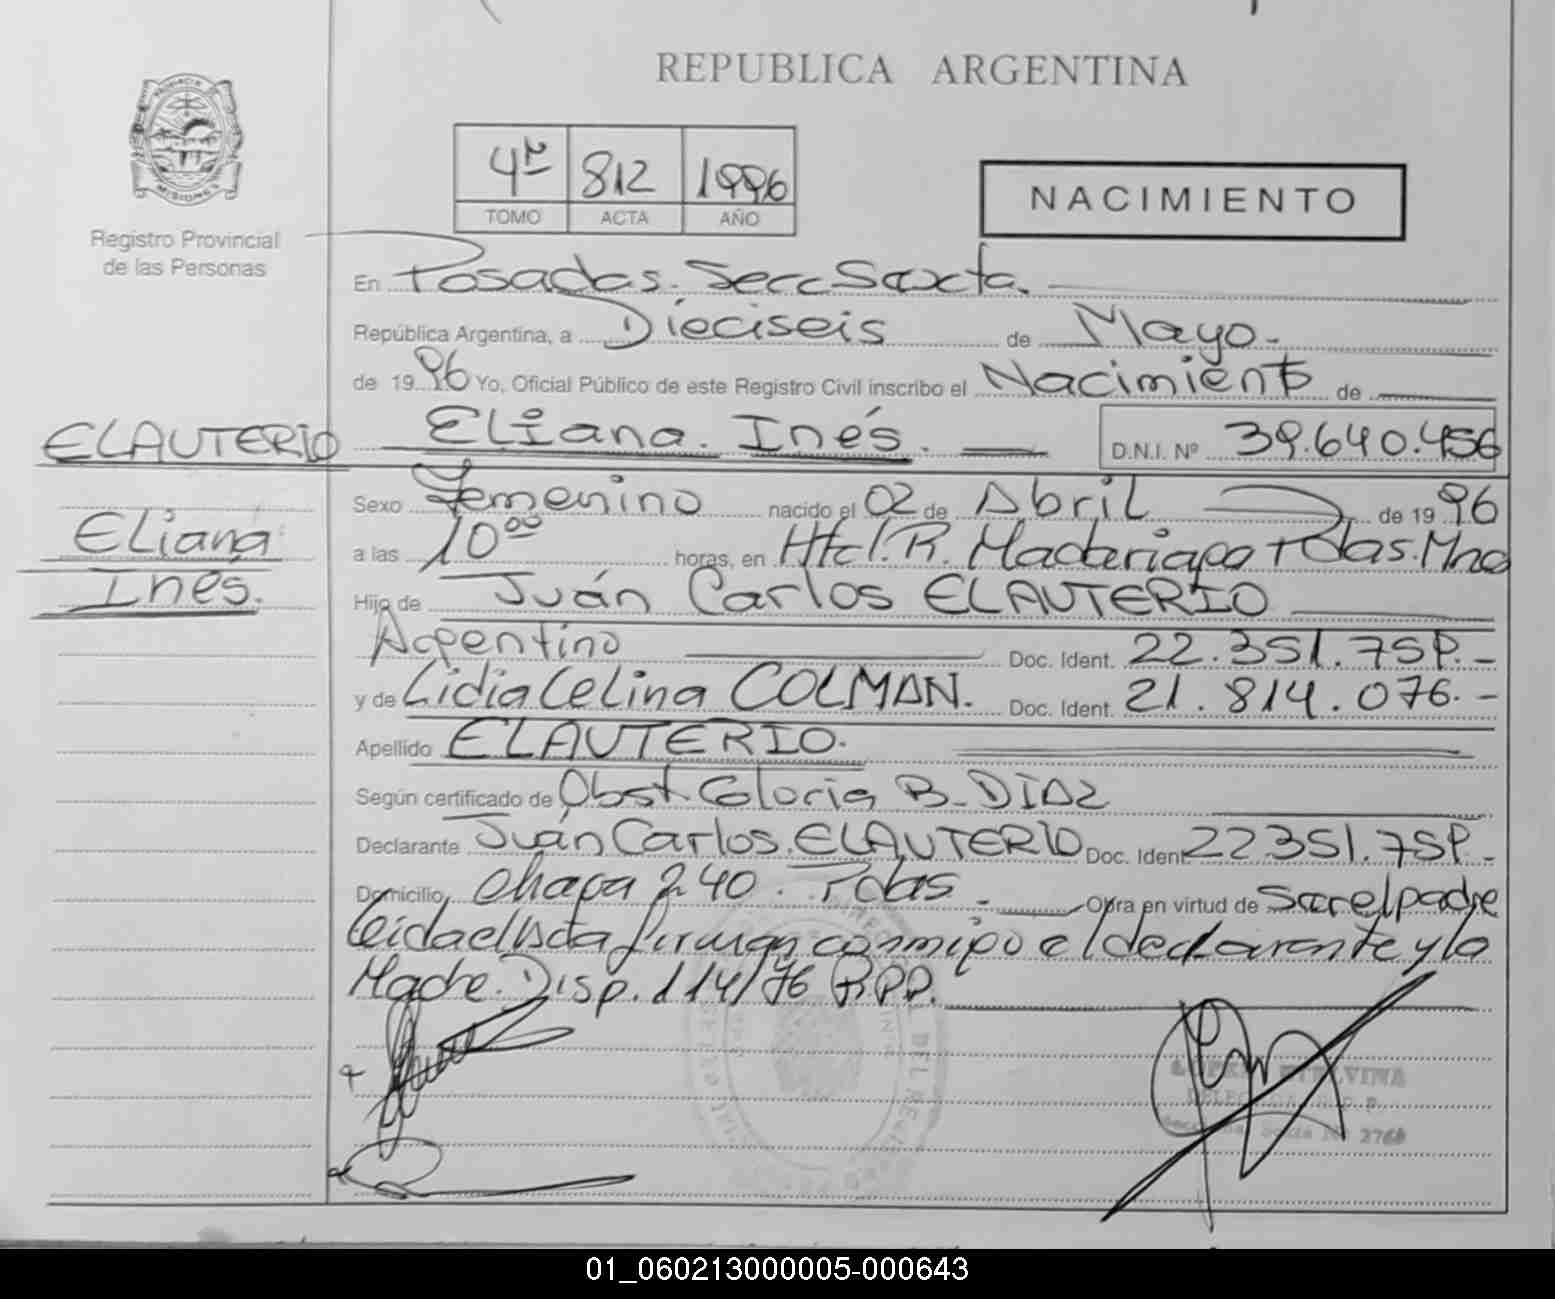 REPUBLICA ARGENTINA
PROVINCIA DE MISIONES
Registro Provincial
de las Personas
4º 812 1996
TOMO ACTA AÑO
NACIMIENTO
En Posadas. Secc Sexta.
República Argentina, a Dieciseis de Mayo.-
de 1996 Yo, Oficial Público de este Registro Civil inscribo el Nacimiento de
ELAUTERIO
Eliana. Inés. D.N.I. Nº 39.640.456
Eliana
Inés.
Sexo Femenino nacido el 02 de Abril de 1996
a las 10⁰⁰ horas, en R. Madariaga Pdas. Mnes
Hijo de Juán Carlos ELAUTERIO
Argentino Doc. Ident. 22.351.759.-
y de Lidia Celina COLMAN. Doc. Ident. 21.814.076.-
Apellido ELAUTERIO.
Según certificado de Obst. Gloria B. DIAZ
Declarante Juán Carlos. ELAUTERIO Doc. Ident 22351.759.-
Domicilio chapa 240. Pdas. Obra en virtud de ser el padre
leida el Acta firman conmigo el declarante y la
Madre. Disp. 114/76 R.P.P.
ETELVINA
2760
01_060213000005-000643